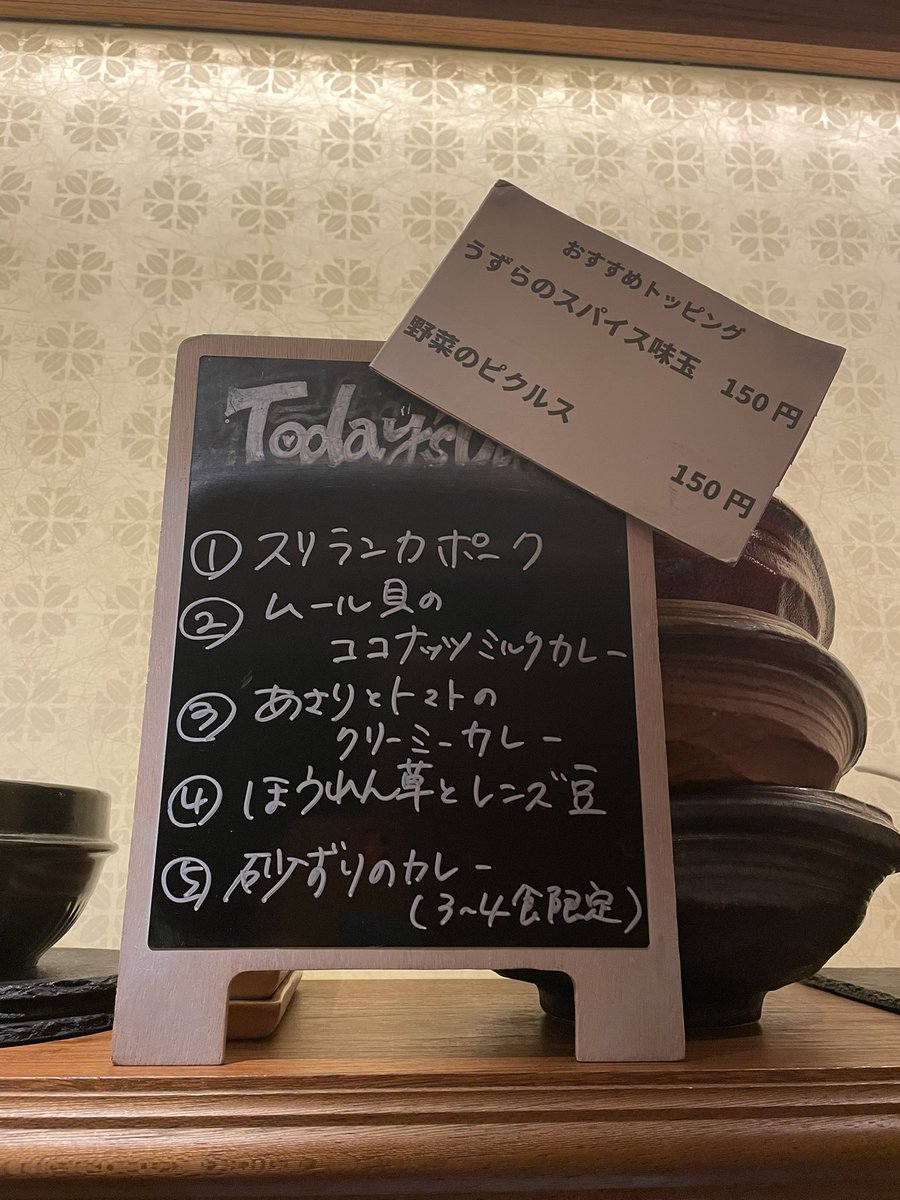 おすすめトッピング
うずらのスパイス味玉 150円
野菜のピクルス 150円
Today's
① スリランカポーク
② ムール貝の
ココナッツミルクカレー
③ あさりとトマトの
クリーミーカレー
④ ほうれん草とレンズ豆
⑤ 砂ずりのカレー
(3~4食限定)